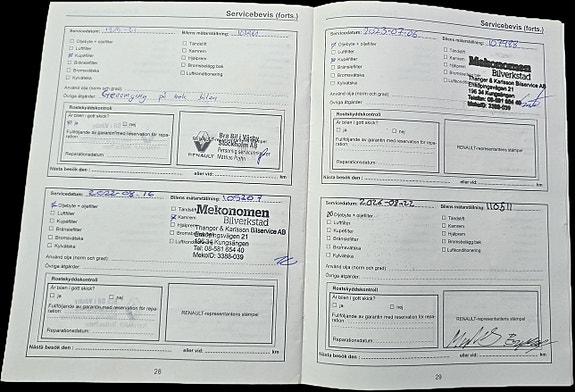 Servicebevis (forts.)
Servicedatum: Bilens mätarställning:
Oljebyte + oljefilter
Luftfilter
Kupéfilter
Bränslefilter
Bromsvätska
Kylvätska
Tändstift
Kamrem
Hjälprem
Bromsbelägg bak
Luftkonditionering
Använd olja (norm och grad)
Övriga åtgärder: Genomgång på bak bilen
Rostskyddskontroll
Är bilen i gott skick?
ja nej
Fullföljande av garantin med reservation för reparation
Reparationsdatum
Bra Bil i Väsby
Stockholm AB
RENAULT
Nästa besök den: eller vid: km
Servicedatum: 2022-08-16 Bilens mätarställning:
Oljebyte + oljefilter
Luftfilter
Kupéfilter
Bränslefilter
Bromsvätska
Kylvätska
Tändstift
Kamrem
Hjälprem
Bromsbelägg bak
Luftkonditionering
Mekonomen
Bilverkstad
Thanger & Karlsson Bilservice AB
Enköpingsvägen 21
196 34 Kungsängen
Tel: 08-581 654 40
MekoID: 3388-039
Använd olja (norm och grad)
Övriga åtgärder:
Rostskyddskontroll
Är bilen i gott skick?
ja nej
Fullföljande av garantin med reservation för reparation
Reparationsdatum
RENAULT-representantens stämpel
Nästa besök den: eller vid: km
28
Servicebevis (forts.)
Servicedatum: 2023-07-06 Bilens mätarställning:
Oljebyte + oljefilter
Luftfilter
Kupéfilter
Bränslefilter
Bromsvätska
Kylvätska
Tändstift
Kamrem
Hjälprem
Mekonomen
Bilverkstad
Thanger & Karlsson Bilservice AB
Enköpingsvägen 21
196 34 Kungsängen
Telefon: 08-581 654 40
MekoID: 3388-039
Använd olja (norm och grad)
Övriga åtgärder:
Rostskyddskontroll
Är bilen i gott skick?
ja nej
Fullföljande av garantin med reservation för reparation
Reparationsdatum
RENAULT-representantens stämpel
Nästa besök den: eller vid: km
Servicedatum: 2024-08-22 Bilens mätarställning:
Oljebyte + oljefilter
Luftfilter
Kupéfilter
Bränslefilter
Bromsvätska
Kylvätska
Tändstift
Kamrem
Hjälprem
Bromsbelägg bak
Luftkonditionering
Använd olja (norm och grad)
Övriga åtgärder:
Rostskyddskontroll
Är bilen i gott skick?
ja nej
Fullföljande av garantin med reservation för reparation
Reparationsdatum
RENAULT-representantens stämpel
Nästa besök den: eller vid: km
29